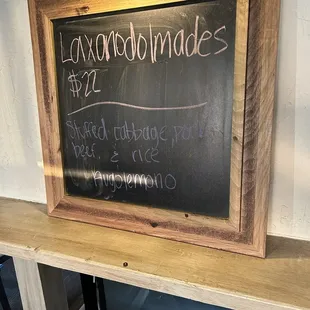 Laxanodolmades
$22
Stuffed cabbage, pork,
beef, & rice
Avgolemono